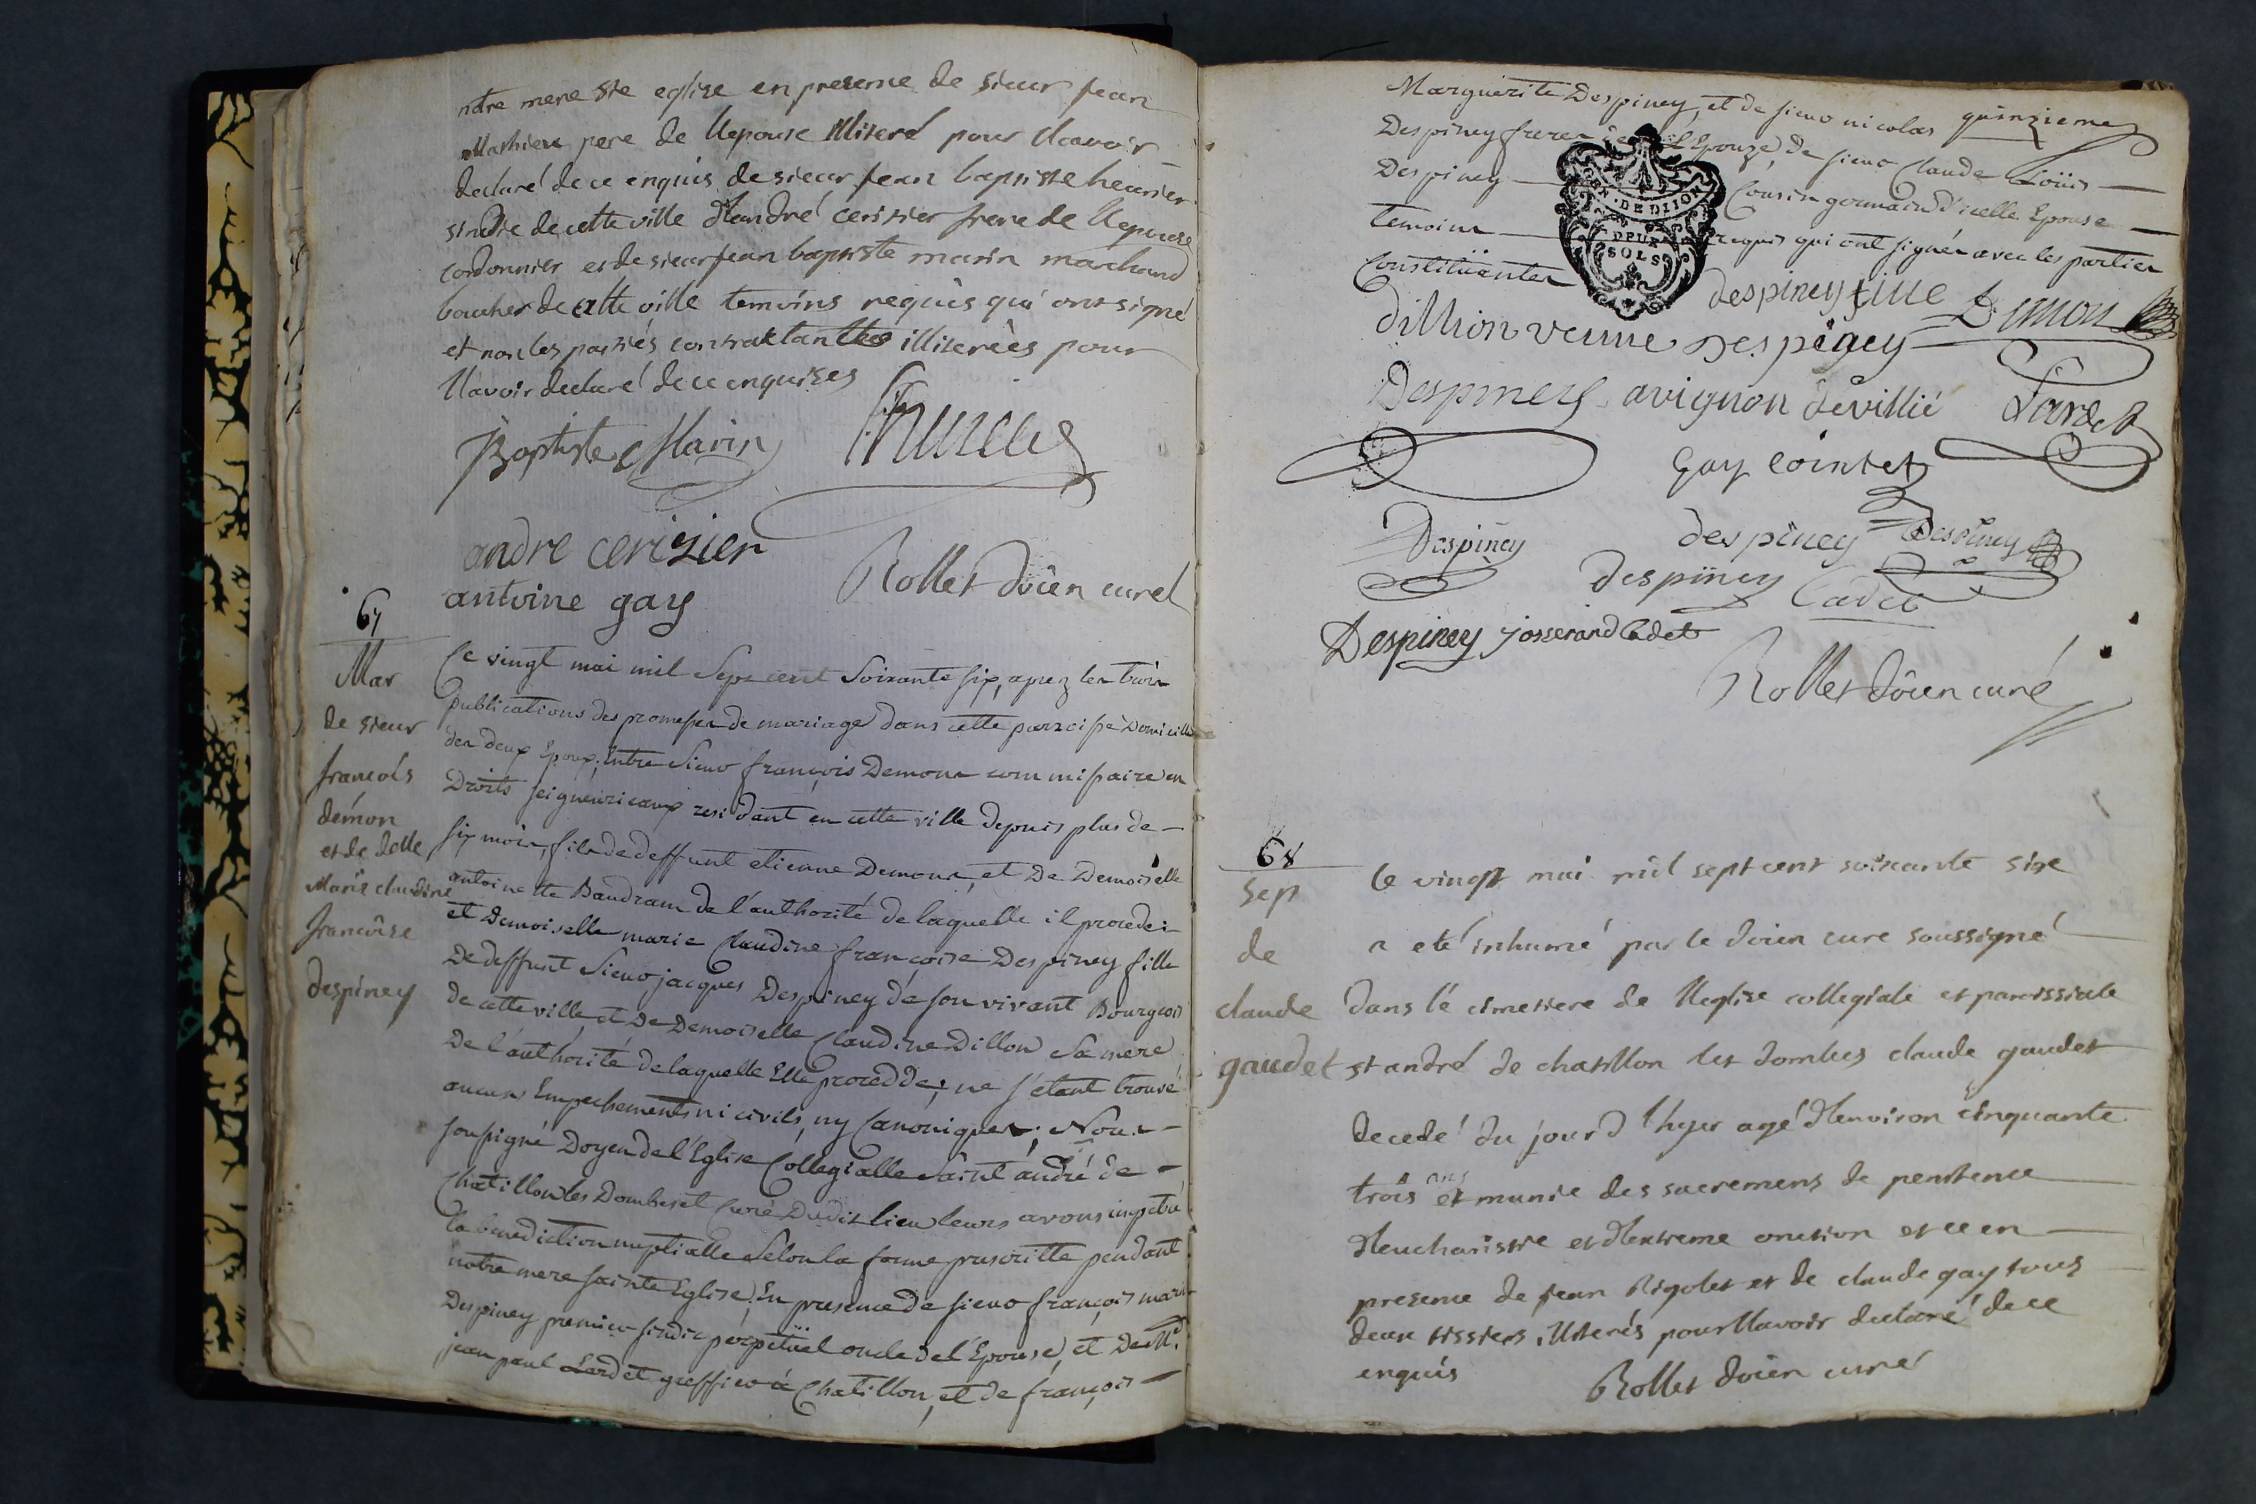 notre mere Ste eglise en presence de sieur jean
Mathieu pere de l'lepouse illiteré pour l'lavoir
declaré de ce enquis de sieur jean baptiste
sindic de cette ville d'landré cerizier frere de l'lepouse
cordonnier et de sieur jean baptiste marin marchand
boucher de cette ville temoins requis qui ont signé
et non les partiés contractantes illiterées pour
l'lavoir declaré de ce enquises
Baptiste Marin
andre cerizier
antoine gay
Rollet doïen curé
67
Mar
de sieur
francois
démon
et de delle
Marie claudine
francoise
despiney
Ce vingt mai mil Sept cent Soixante six, apres les trois
publications des promesses de mariage dans cette parroisse Domicille
des deux Epoux, Entre Sieur françois Demons commissaire en
Droits seigneuriaux residant en cette ville depuis plus de
six mois, fils de deffunt etienne Demons, et De Demoiselle
antoinette Baudram de l'authorité de laquelle il procede:
et Demoiselle marie Claudine françoise Despiney fille
De deffunt Sieur jacques Despiney de son vivant Bourgeois
de cette ville, et De Demoiselle Claudine Dillon Sa mere
De l'authorité de laquelle Elle procedde; ne s'etant trouvé
aucuns Empechements ni civils, ny Canoniques; Nous
soussigné Doyen de l'Eglise Collegialle Saint andré de
Chatillon les Dombes et Curé Dudit lieu leurs avons impetré
la benediction nuptialle Selon la forme prescritte pendant
notre mere sainte Eglise, En presence de sieur françois marie
Despiney premier sindic perpetüel oncle de l'Epouse, et De Mr.
jean paul Lardet greffier à Chatillon, et de françois
Marguerite Despiney, et de sieur nicolas quinzieme
Despiney freres de l'Epouze, de sieur Claude Loüis
Despiney Cousin germain d'icelle Epouse
temoins requis qui ont signés avec les parties
Constitüantes
GEN. DE DIJON
DEUX
SOLS
despiney fille Demon
dillion veuve Despiney
Despiney avignon devillié Lardet
Gay cointet
Despiney despiney Despiney
despiney Cadet
Despiney josserand Cadet
Rollet doïen curé
68
Sep
de
claude
gaudet
le vingt mai mil sept cent soixante sixe
a eté inhumé par le doïen curé soussigné
dans le cimetiere de l'leglise collegiale et paroissiale
st andré de chatillon les dombes claude gaudet
decedé du jour d'lhyer agé d'lenviron cinquante
trois ans et munie des sacremens de penitence
d'leucharistie et d'lextreme onction et ce en
presence de jean Rigolet et de claude gay tous
deux tissiers illiterés pour l'lavoir declaré de ce
enquis
Rollet doïen curé